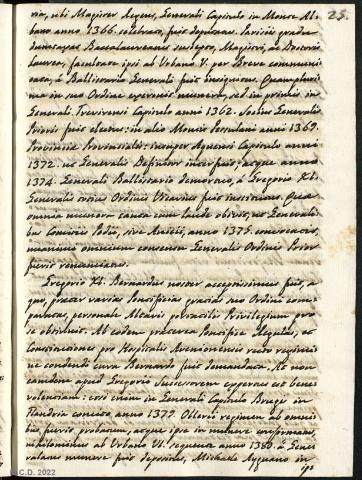 25.
ria, ubi Magister Regens, Generali Capitulo in Monte Al-
bano anno 1366. celebrato, fuit deputatus. Parisiis gradu
Baccalaureatus suscepto, Magistri, ac Doctoris
Laurea, facultate ipsi ab Urbano V. per Breve communi-
cata, á Ballistario Generali fuit insignitus. Quamplurima
in suo Ordine exercuit munera, sed in primis in
Generali Trevirensi Capitulo anni 1362. Socius Generalis
Prioris fuit electus: in alio Montis Pessulani anni 1369.
Provinciæ Provincialis: insuper Aquensi Capitulo anni
1372. ut Generalis Definitor interfuit; atque anno
1374. Generali Ballistario demortuo, á Gregorio XI.
Generalis totius Ordinis Vicarius fuit institutus. Quæ
omnia munera tanta cum laude obivit, ut Generali-
bus Comitiis Podii, sive Anicii, anno 1375. convocatis,
unanimi omnium consensu Generalis Ordinis Prior
fuerit renunciatus.
Gregorio XI. Bernardus noster acceptissimus fuit, a
quo, præter varias Pontificias gratias suo Ordine com-
paratas, personale Altaris portatilis Privilegium pro
se obtinuit. Ab eodem præterea Pontifice Regulas, et
Constitutiones pro Hospitalis Avenionensis recto regimi-
ne condendi cura Bernardo fuit demandata. At non
eamdem apud Gregorii Successorem expertus est bene-
volentiam: etsi enim in Generali Capitulo Brugis in
Flandria coacto, anno 1379. Ollerii regimen ab omni-
bus fuerit probatum, atque ipse in munere confirmatus,
nihilominus ab Urbano VI. sequente anno 1380. á Gene-
ralatus munere fuit depositus, Michaele Ayguano in
ips
C.D. 2022